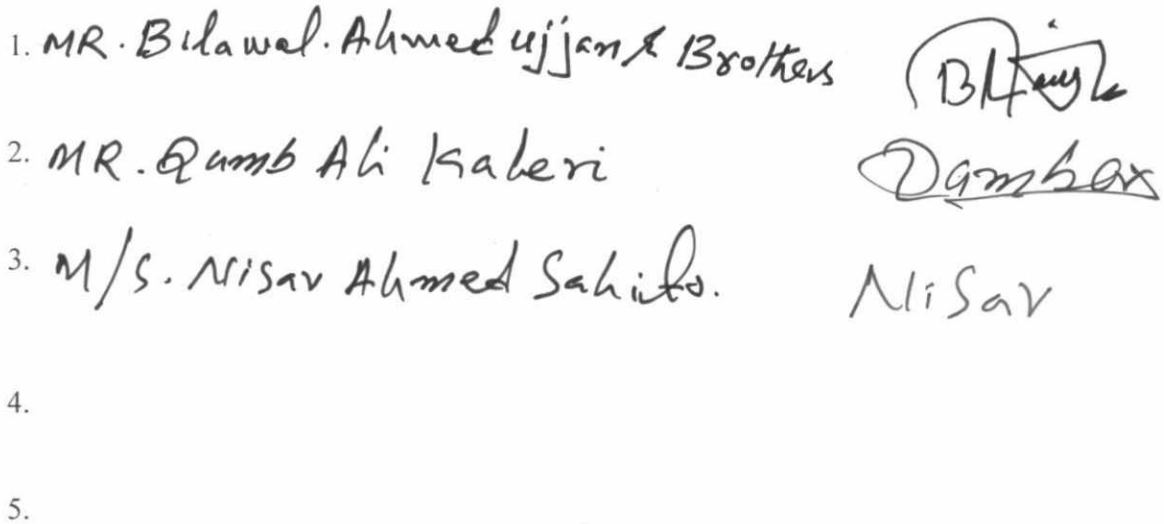 1. MR. Bilawal. Ahmed ujjan & Brothers
2. MR. Qumb Ali Kaleri Qambar
3. M/S. Nisar Ahmed Sahito. Nisar
4.
5.